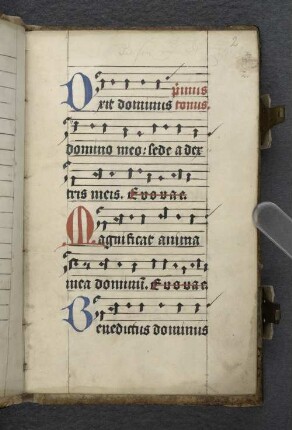 2
Dixit dominus primus tonus.
domino meo: sede a dex
tris meis. Evovae.
Magnificat anima
mea dominū. Evovae.
Benedictus dominus